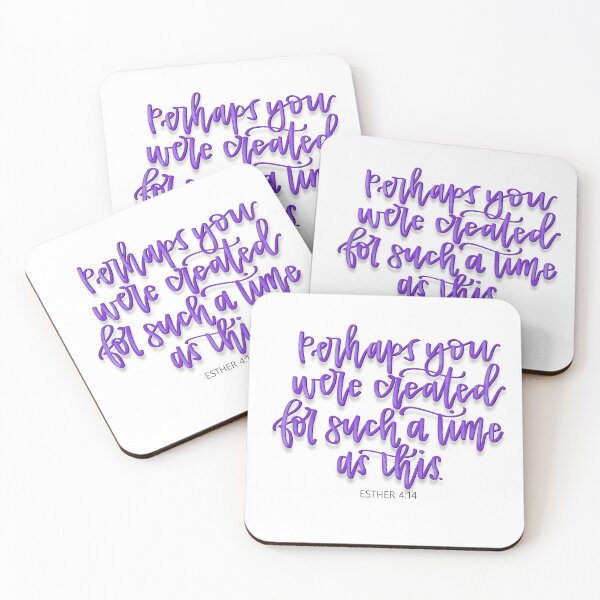 Perhaps you
were created
for a
Perhaps you
were created
for such a time
as this.
Perhaps you
were created
for such a time
as this
ESTHER
Perhaps you
were created
for such a time
as this.
ESTHER 4:14